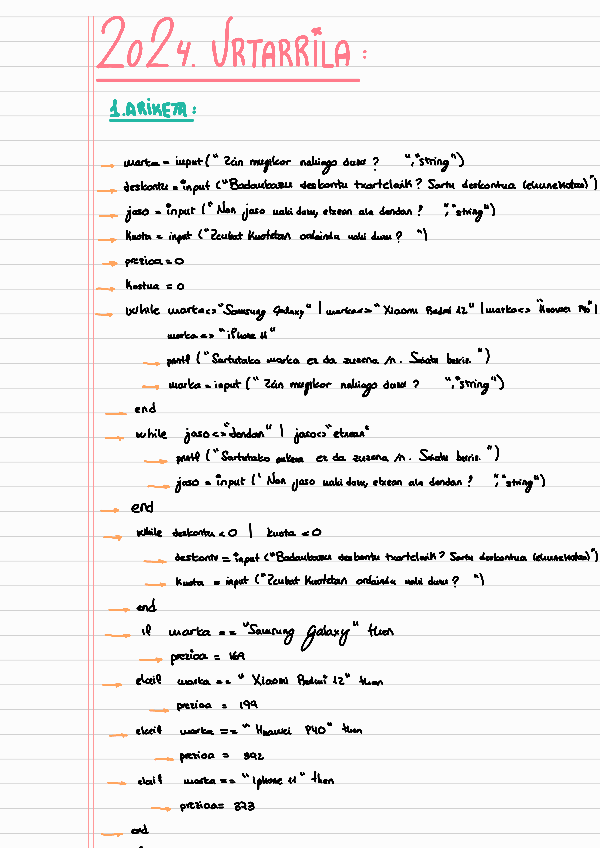 2024. URTARRILA:
1. ARIKETA:
marka = input(" Zán mugikor nahiago duzu ? ","string")
deskontu = input ("Badaukazu deskontu txartelaik? Sartu deskontua (ehunekotan)")
jaso = input (" Non jaso nahi duzu, etxean ala dendan ? ","string")
kuota = input ("Zeubat kuotetan ordaindu nahi duzu? ")
prezioa = 0
kostua = 0
while marka<>"Samsung Galaxy" | marka<>"Xiaomi Redmi 12" | marka<> "Huawei P40"|
marka<> "iPhone 11"
printf ("Sartutako marka ez da zuzena \n. Saiatu berriz. ")
marka = input (" Zán mugikor nahiago duzu ? ","string")
end
while jaso<>"dendan" | jaso<>"etxean"
printf ("Sartutako aukera ez da zuzena \n. Saiatu berriz. ")
jaso = input (' Non jaso nahi duzu, etxean ala dendan ? ","string")
end
while deskontu < 0 | kuota < 0
deskontu = input ("Badaukazu deskontu txartelaik? Sartu deskontua (ehunekotan)")
kuota = input ("Zeubat kuotetan ordaindu nahi duzu? ")
end
if marka == "Samsung Galaxy" then
prezioa = 169
elseif marka == " Xiaomi Redmi 12" then
prezioa = 199
elseif marka == " Huawei P40" then
prezioa = 392
elseif marka == " Iphone 11" then
prezioa= 373
end